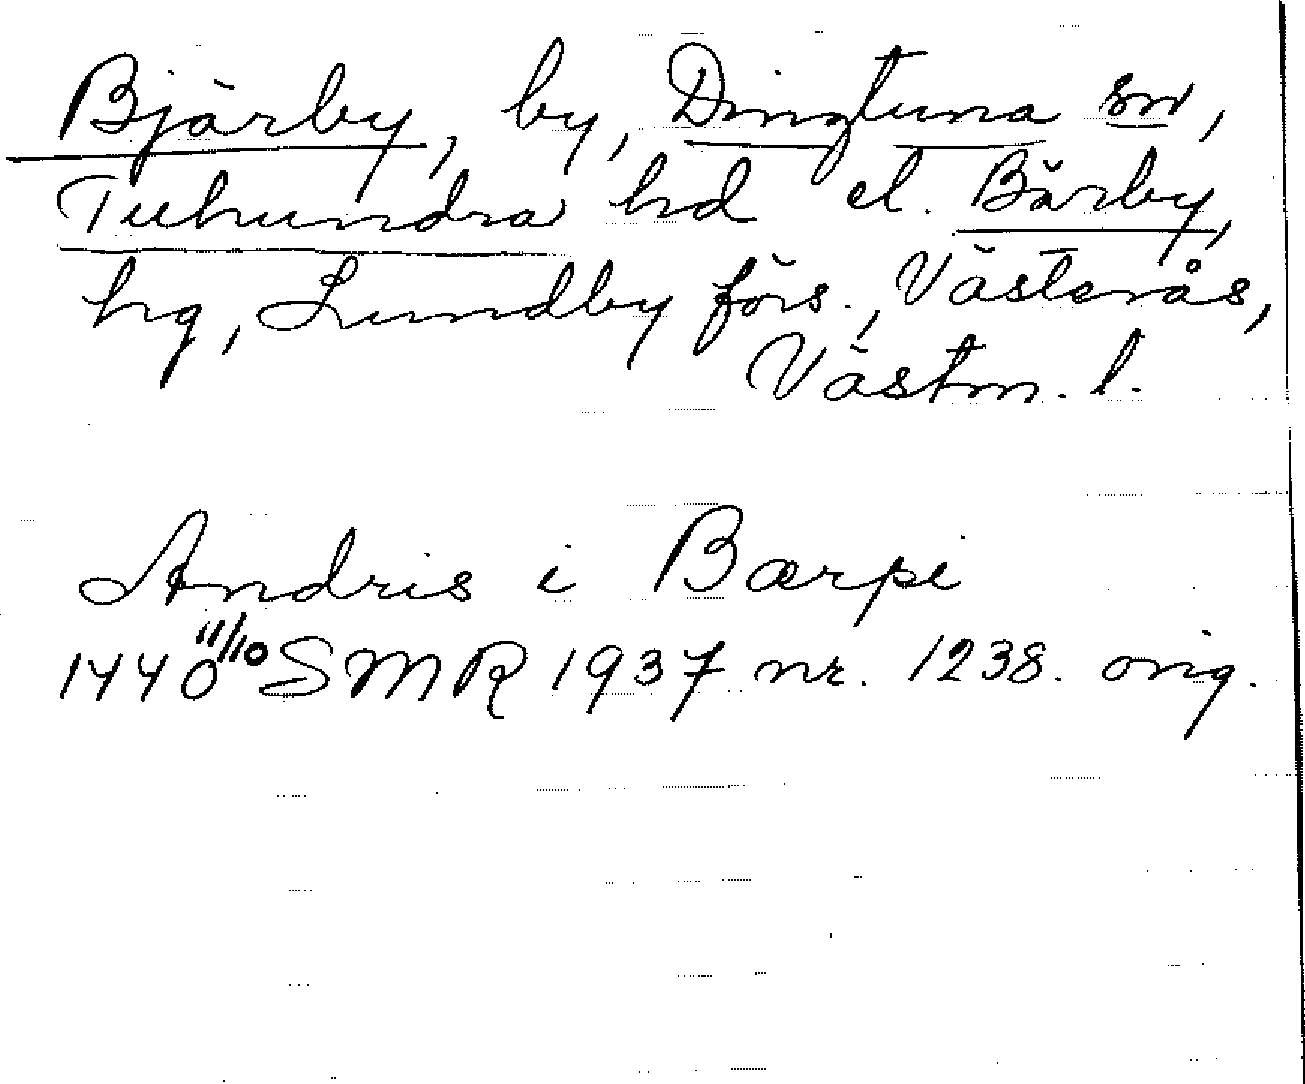 Bjärby, by, Dingtuna sn,
Tuhundra hd el. Bärby,
hg, Lundby förs., Västerås,
Västm. l.
Andris i Bærpi
1440 11/10 SMR 1937 nr. 1238. orig.